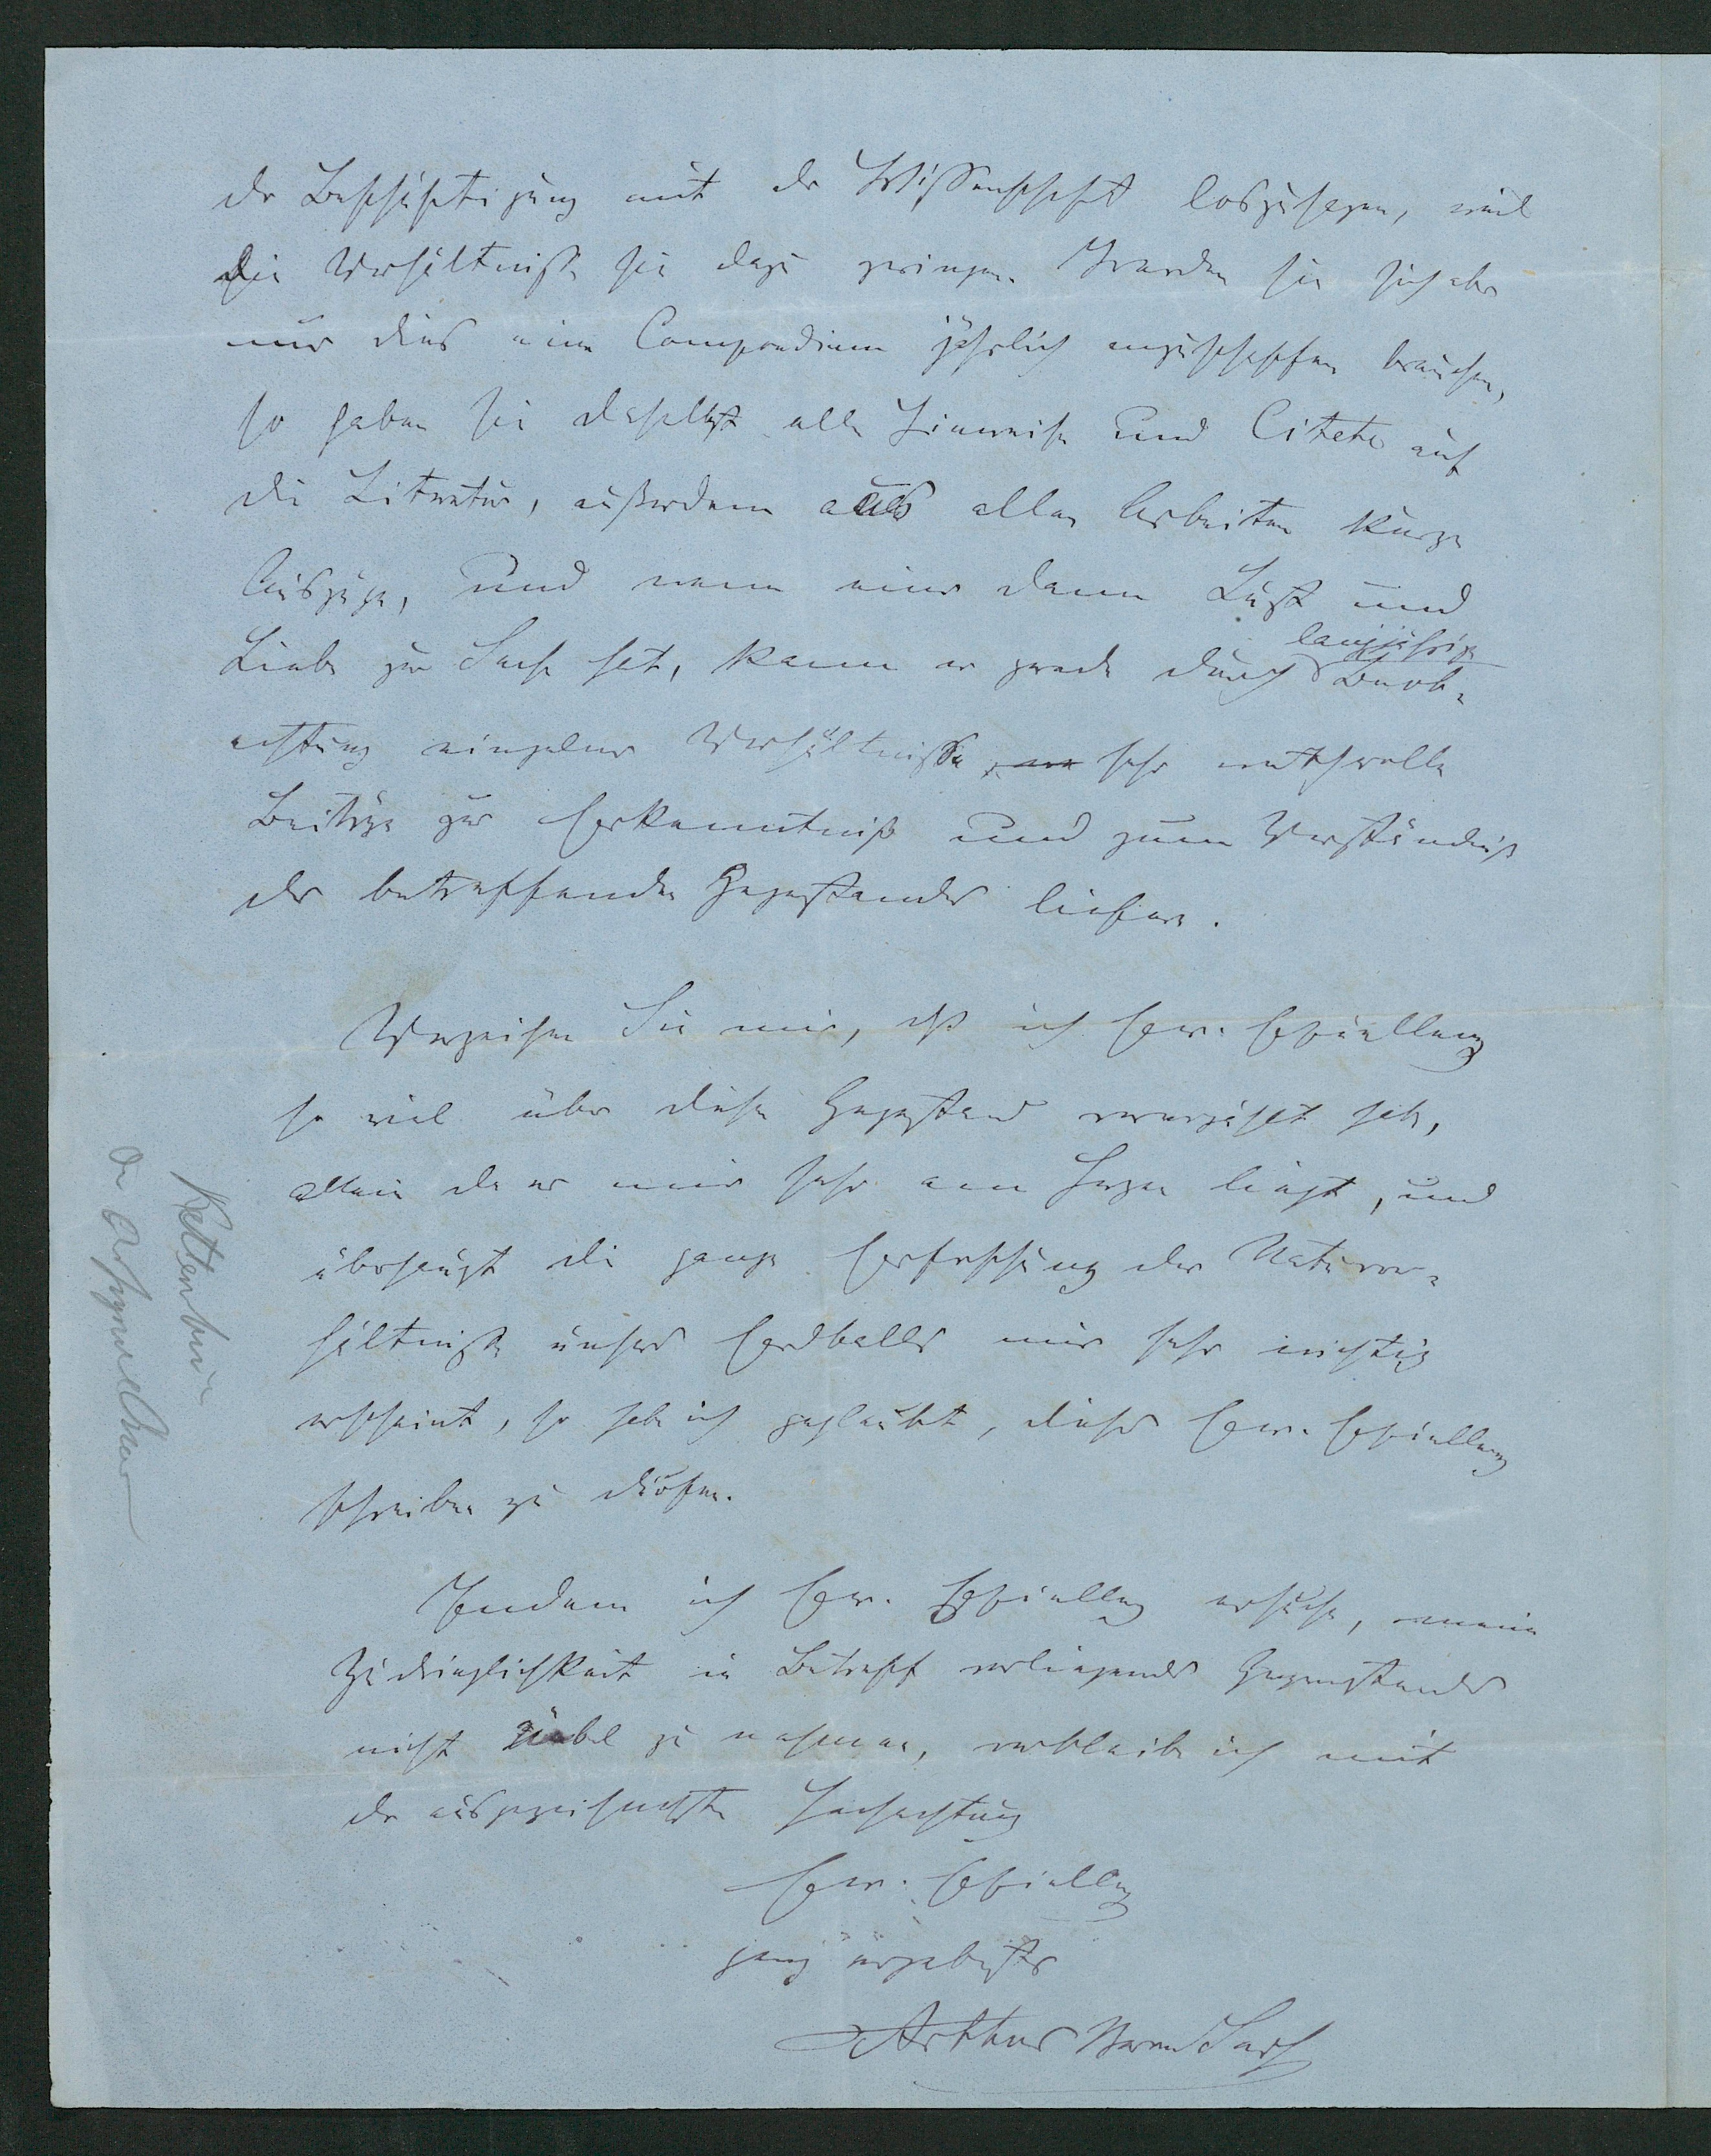 der Beschäftigung mit der Wissenschaft loszusagen, weil
die Verhältnisse sie dazu zwingen. Werden sie sich aber
nur dies eine Compendium jährlich anzuschaffen brauchen,
so haben sie daselbst alle Hinweise und Citate auf
die Literatur, außerdem aus allen Arbeiten kurze
Auszüge, und wenn einer dann Lust und
Liebe zur Sache hat, kann er gerade durch langjährige Beob-
achtung einzelner Verhältnisse, sehr werthvolle
Beiträge zur Erkenntniß und zum Verständniß
des betreffenden Gegenstandes liefern.
Verzeihen Sie mir, daß ich Ew. Excellenz
so viel über diesen Gegenstand habe,
allein da er mir sehr am Herzen liegt, und
überhaupt die ganze Erforschung der Naturver-
hältnisse unseres Erdballs mir sehr wichtig
erscheint, so habe ich geglaubt, dieses Ew. Excellenz
schreiben zu dürfen.
Indem ich Ew. Excellenz ersuche, meine
Zudringlichkeit in Betreff vorliegenden Gegenstandes
nicht übel zu nehmen, verbleibe ich mit
der ausgezeichnetsten Hochachtung
Ew. Excellenz
ganz ergebenster
Arthur Baron Sass